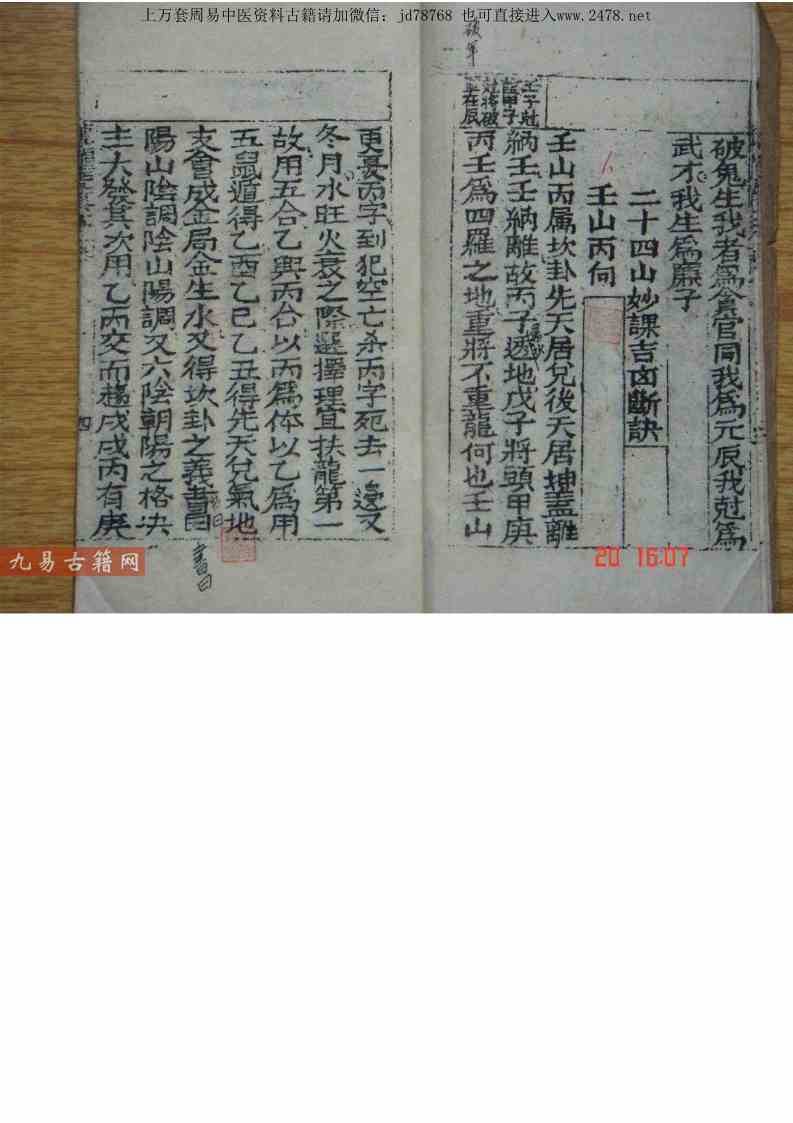 上万套周易中医资料古籍请加微信：jd78768 也可直接进入www.2478.net
破鬼生我者為食官同我為元辰我尅為
武才我生為廉子
二十四山妙課吉凶斷訣
壬山丙向
壬山丙属坎卦先天居兌後天居坤蓋離
納壬壬納離故丙子透地戊子將頭甲庚
丙壬為四羅之地重將不重龍何也壬山
更憂丙字到犯空亡杀丙字宛去一邊又
冬月水旺火衰之際選擇理宜扶龍第一
故用五合乙與丙合以丙為体以乙為用
五鼠遁得乙酉乙巳乙丑得先天兌氣地
支會成金局金生水又得坎卦之義書曰
陽山陰調陰山陽調又六陰朝陽之格决
主大發其次用乙丙交而趨戌戌丙有庚
四
書曰
九易古籍网
20 16:07